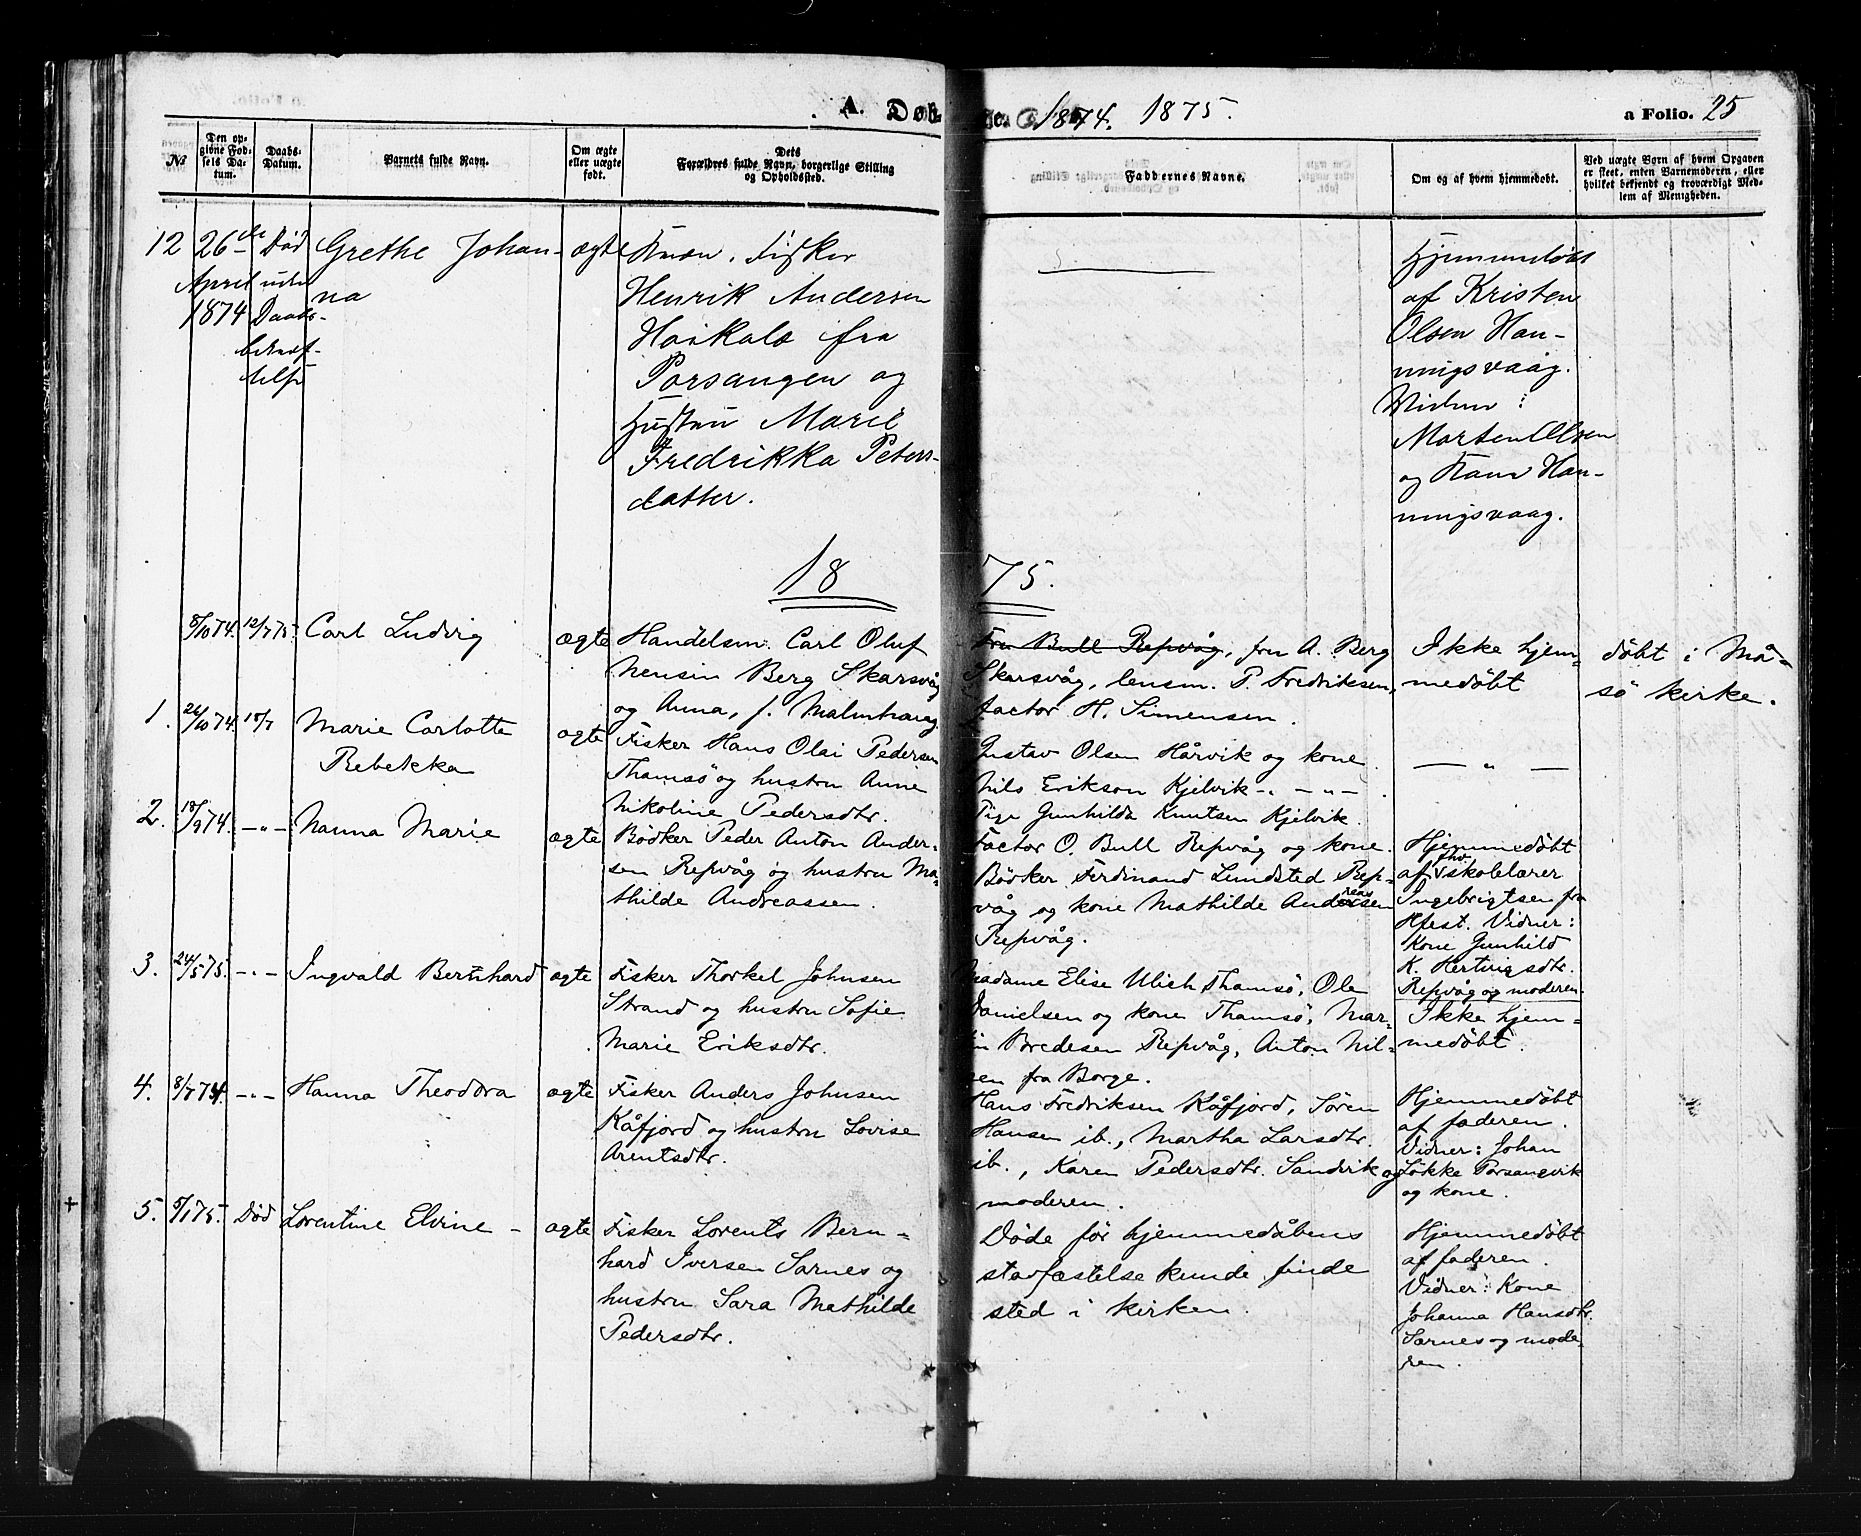 A. Døb 1874. 1875. a Folio. 25
No
Den op-
givne Fød-
sels Da-
tum.
Daabs-
Datum.
Barnets fulde Navn.
Om ægte
eller uægte
født.
Dets
Forældres fulde Navn, borgerlige Stilling
og Opholdssted.
Faddernes Navne.
Om og af hvem hjemmedøbt.
Ved uægte Børn af hvem Opgaven
er skeet, enten Barnemoderen, eller
hvilket bekjendt og troværdigt Med-
lem af Menigheden.
12
26de
April
1874
Død
uden
Daabs-
bekræf-
telse
Grethe Johan-
na
ægte
Kvæn. Fisker
Henrik Andersen
Haikala fra
Porsangen og
Hustru Marie
Fredrikka Peters-
datter.
Hjemmedøbt
af Kristen
Olsen Hon-
ningsvaag.
Vidner:
Morten Olsen
og Kone Hon-
ningsvaag.
1875.
8/10 74.
12/7 75.
Carl Ludvig
ægte
Handelsm. Carl Oluf
Nensin Berg Skarsvåg
og Anna, f. Malmhaug
Fru Bull Repvåg, fru A. Berg
Skarsvåg, lensm. P. Fredriksen,
factor H. Simensen.
Ikke hjem-
medøbt
døbt i Må-
sø kirke.
1.
26/10 74.
18/7
Marie Carlotte
Rebekka
ægte
Fisker Hans Olai Pedersen
Thamsö og hustru Anne
Nikoline Pedersdtr.
Gustav Olsen Hårvik og kone.
Nils Erikson Kjelvik -"- -"-.
Pige Gunhilda Knutsen Kjelvik.
— " —
2.
18/9 74.
-"-
Nanna Marie
ægte
Bödker Peder Anton Ander-
sen Repvåg og hustru Ma-
thilde Andreassen.
Factor O. Bull Repvåg og kone.
Bödker Ferdinand Lundsted Rep-
våg og kone Mathilde Andersen
Repvåg.
Hjemmedøbt
af fhv. skolelærer
Ingebrigtsen fra
Hfest. Vidner:
Kone Gunhild
K. Hertvigsdtr.
Repvåg og moderen.
3.
24/5 75.
-"-
Ingvald Bernhard
ægte
Fisker Thorkel Johnsen
Strand og hustru Sofie
Marie Eriksdtr.
Madame Elise Ulich Thamsö, Ole
Danielsen og kone Thamsö, Mar-
tin Bredesen Repvåg, Anton Nil-
sen fra Borge.
Ikke hjem-
medøbt.
4.
8/7 74.
-"-
Hanna Theodora
ægte
Fisker Anders Johnsen
Kåfjord og hustru Lovise
Arentsdtr.
Hans Fredriksen Kåfjord, Sören
Hansen ib., Martha Larsdtr.
ib., Karen Pedersdtr. Sandvik og
moderen.
Hjemmedøbt
af faderen.
Vidner: Johan
Løkke Porsangvik
og kone.
5.
5/1 75.
Død
Lorentine Elvine -
ægte
Fisker Lorents Bern-
hard Iversen Sarnes og
hustru Sara Mathilde
Pedersdtr.
Døde før hjemmedåbens
stadfæstelse kunde finde
sted i kirken.
Hjemmedøbt
af faderen.
Vidner: Kone
Johanna Hansdtr.
Sarnes og mode-
ren.